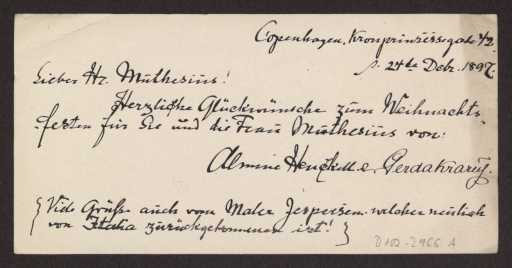 Copenhagen, Kronprinsessegade 42
d. 24de Debr. 1897.
Lieber Hr. Muthesius!
Herzliche Glückwünsche zum Weihnachts-
festen für Sie und die Frau Muthesius von:
Almine Henckell e. Gerda Krarup.
{ Viele Grüsse auch von Maler Jespersen welcher neulich
von Italia zurückgekommenen ist! }
D102-2966 A